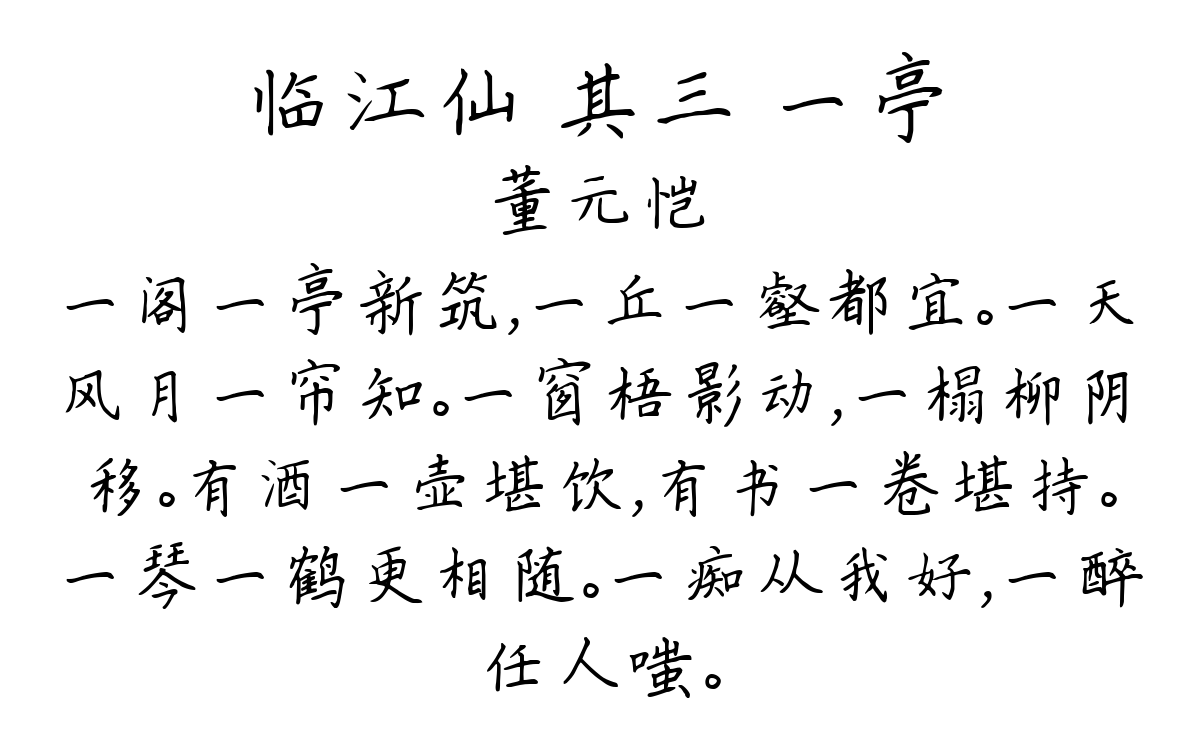 临江仙 其三 一亭
董元恺
一阁一亭新筑,一丘一壑都宜。一天
风月一帘知。一窗梧影动,一榻柳阴
移。有酒一壶堪饮,有书一卷堪持。
一琴一鹤更相随。一痴从我好,一醉
任人嗤。